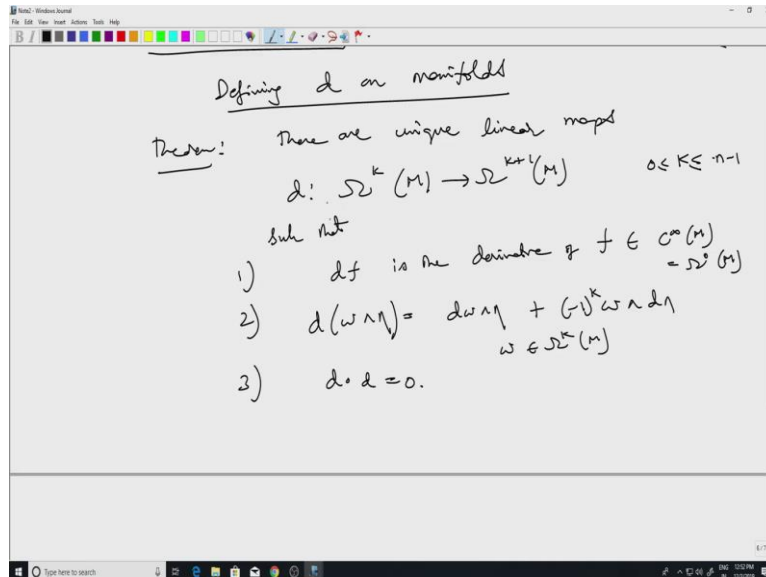 Note2 - Windows Journal
File Edit View Insert Actions Tools Help
B I
Defining d on manifolds
Theorem: There are unique linear maps
d: Ω^k (M) → Ω^{k+1} (M) 0 ≤ k ≤ n-1
such that
1) df is the derivative of f ∈ C^∞(M)
= Ω^0 (M)
2) d(ω ∧ η) = dω ∧ η + (-1)^k ω ∧ dη
ω ∈ Ω^k (M)
3) d∘d = 0.
Type here to search
ENG 12:52 PM